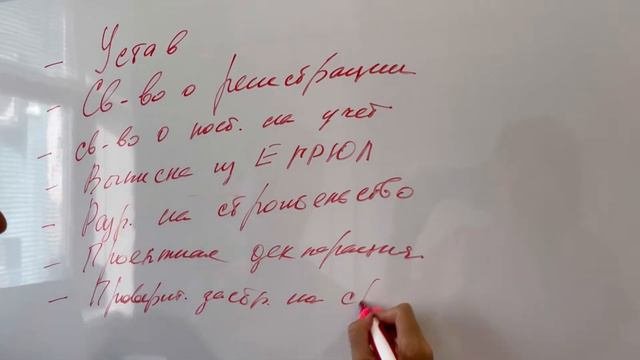 - Устав
- Св-во о регистрации
- св-во о пост. на учет
- Выписка из ЕГРЮЛ
- Разр. на строительство
- Проектная декларация
- Проверит. застр. на с